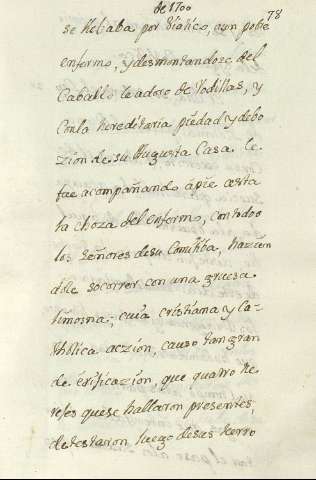 de 1700
78
se llebaba por Viatico, a un pobre
enfermo, y desmontandose del
Caballo le adoro de Rodillas, y
Con la hereditaria piedad y debo
zion de su Augusta Casa le
fue acompañando à pie asta
la choza del enfermo, con todos
los Señores de su Comitiba, hazien
dole socorrer con una gruesa
limosna; cuia cristiana y Ca-
tholica aczion, causo tan gran
de erificazion, que quatro he
rejes que se hallaron presentes,
detestaron luego de sus herro